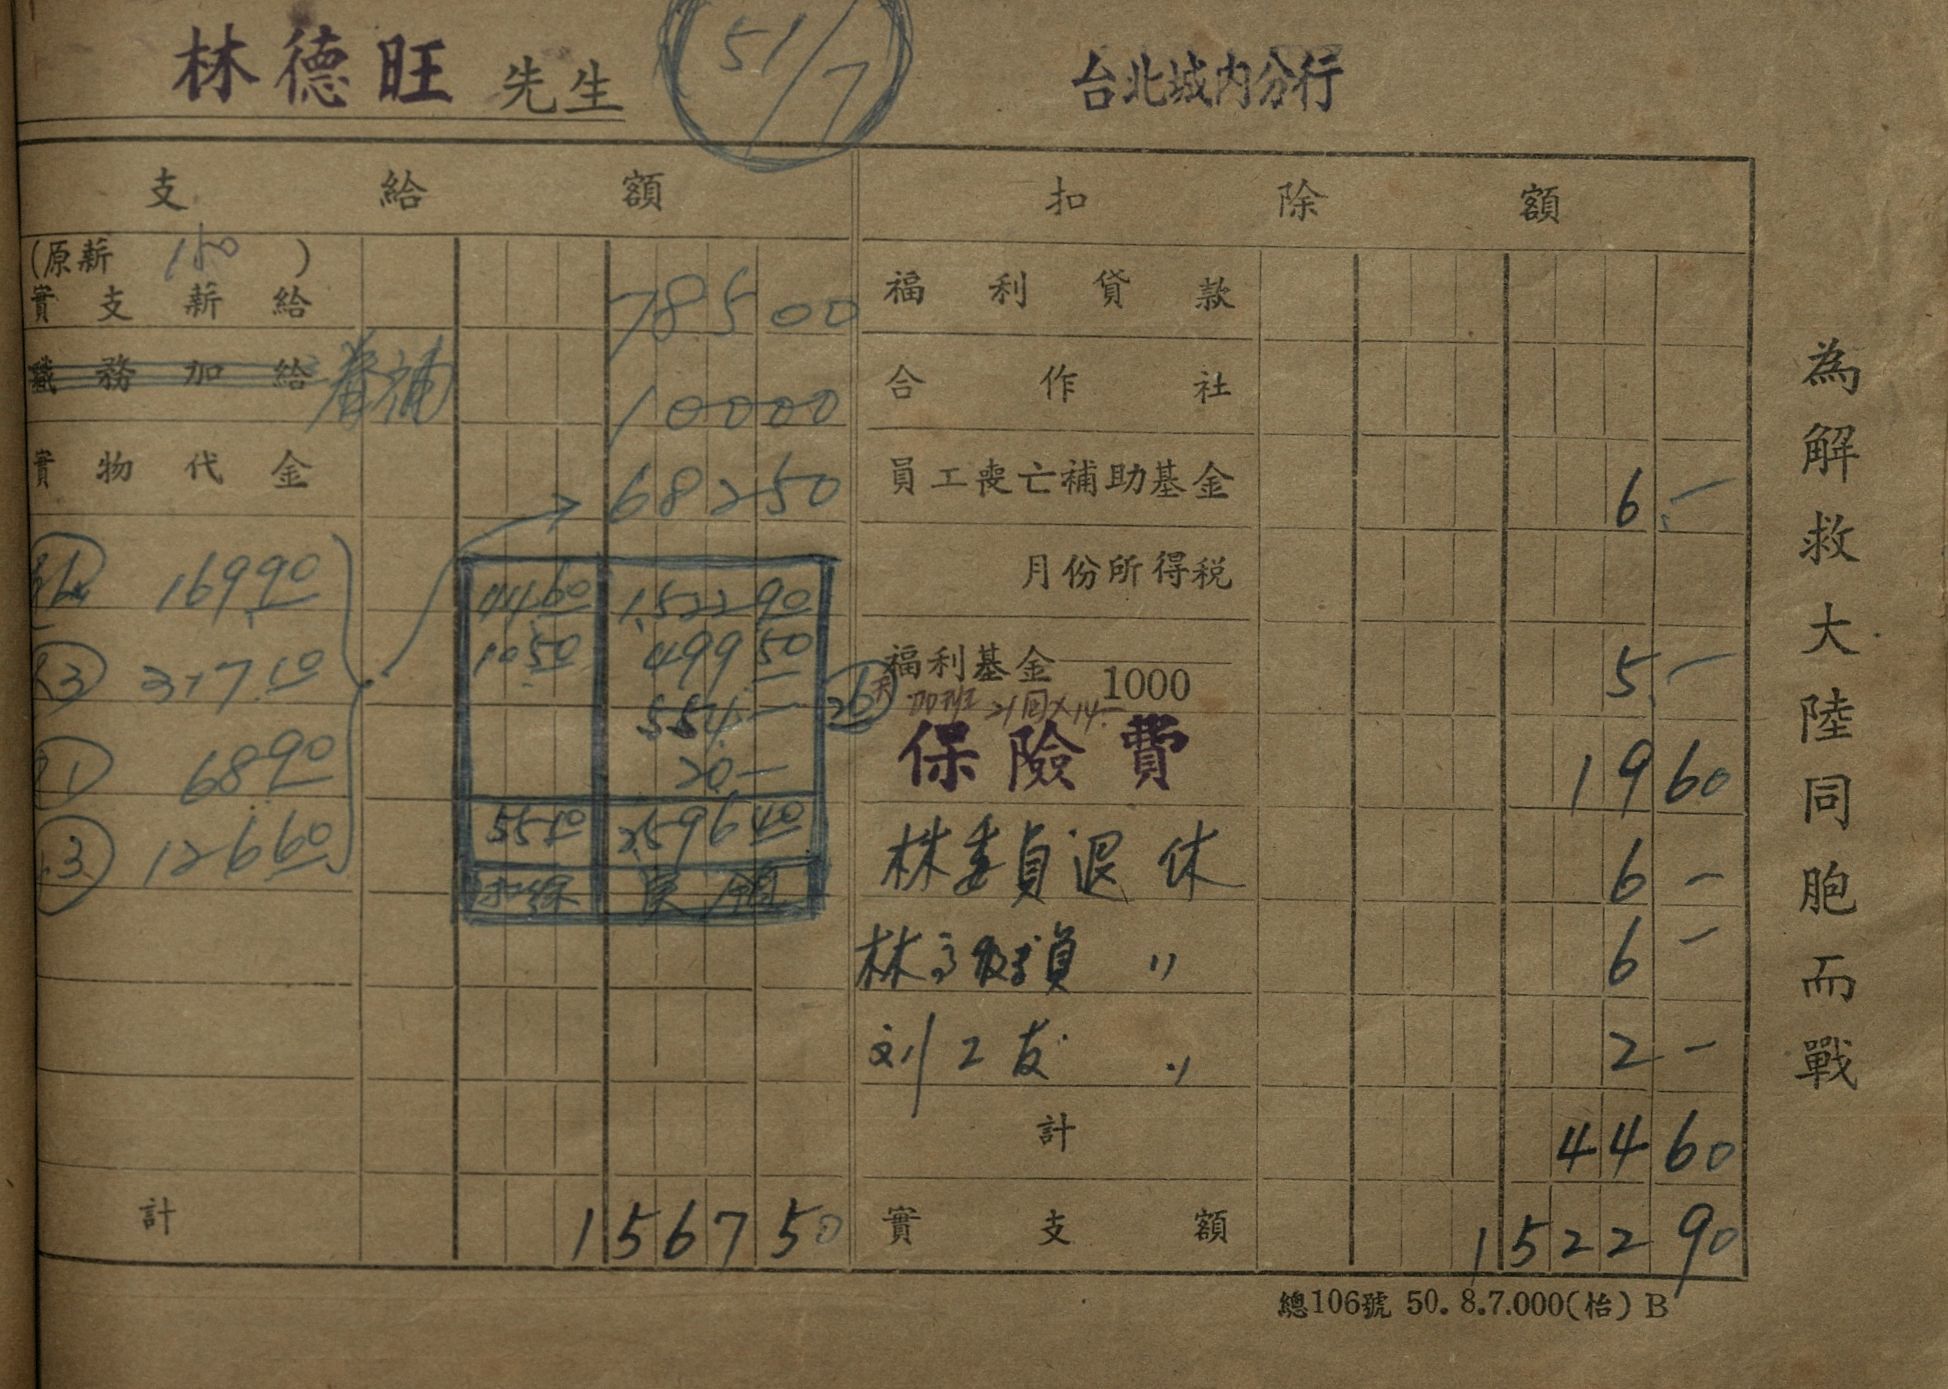 林德旺 先生
51/7
台北城内分行
支給額
(原薪 150 )
實支薪給 785 00
職務加給 眷補 100 00
實物代金 682 50
169.90
317.10
68.90
126.60
44.60 1,522 90
10.50 499 50
554 —
20 —
55.10 2,596 40
扣除 實領
扣除額
福利貸款
合作社
員工喪亡補助基金 6.—
月份所得税
福利基金 1000 5.—
26天 加班 21回×14—
保險費 19 60
林委員退休 6 —
林高級員 〃 6 —
刘工友 〃 2 —
計 44 60
計 1567 50
實支額 1522 90
總106號 50.8.7.000(怡) B
為解救大陸同胞而戰